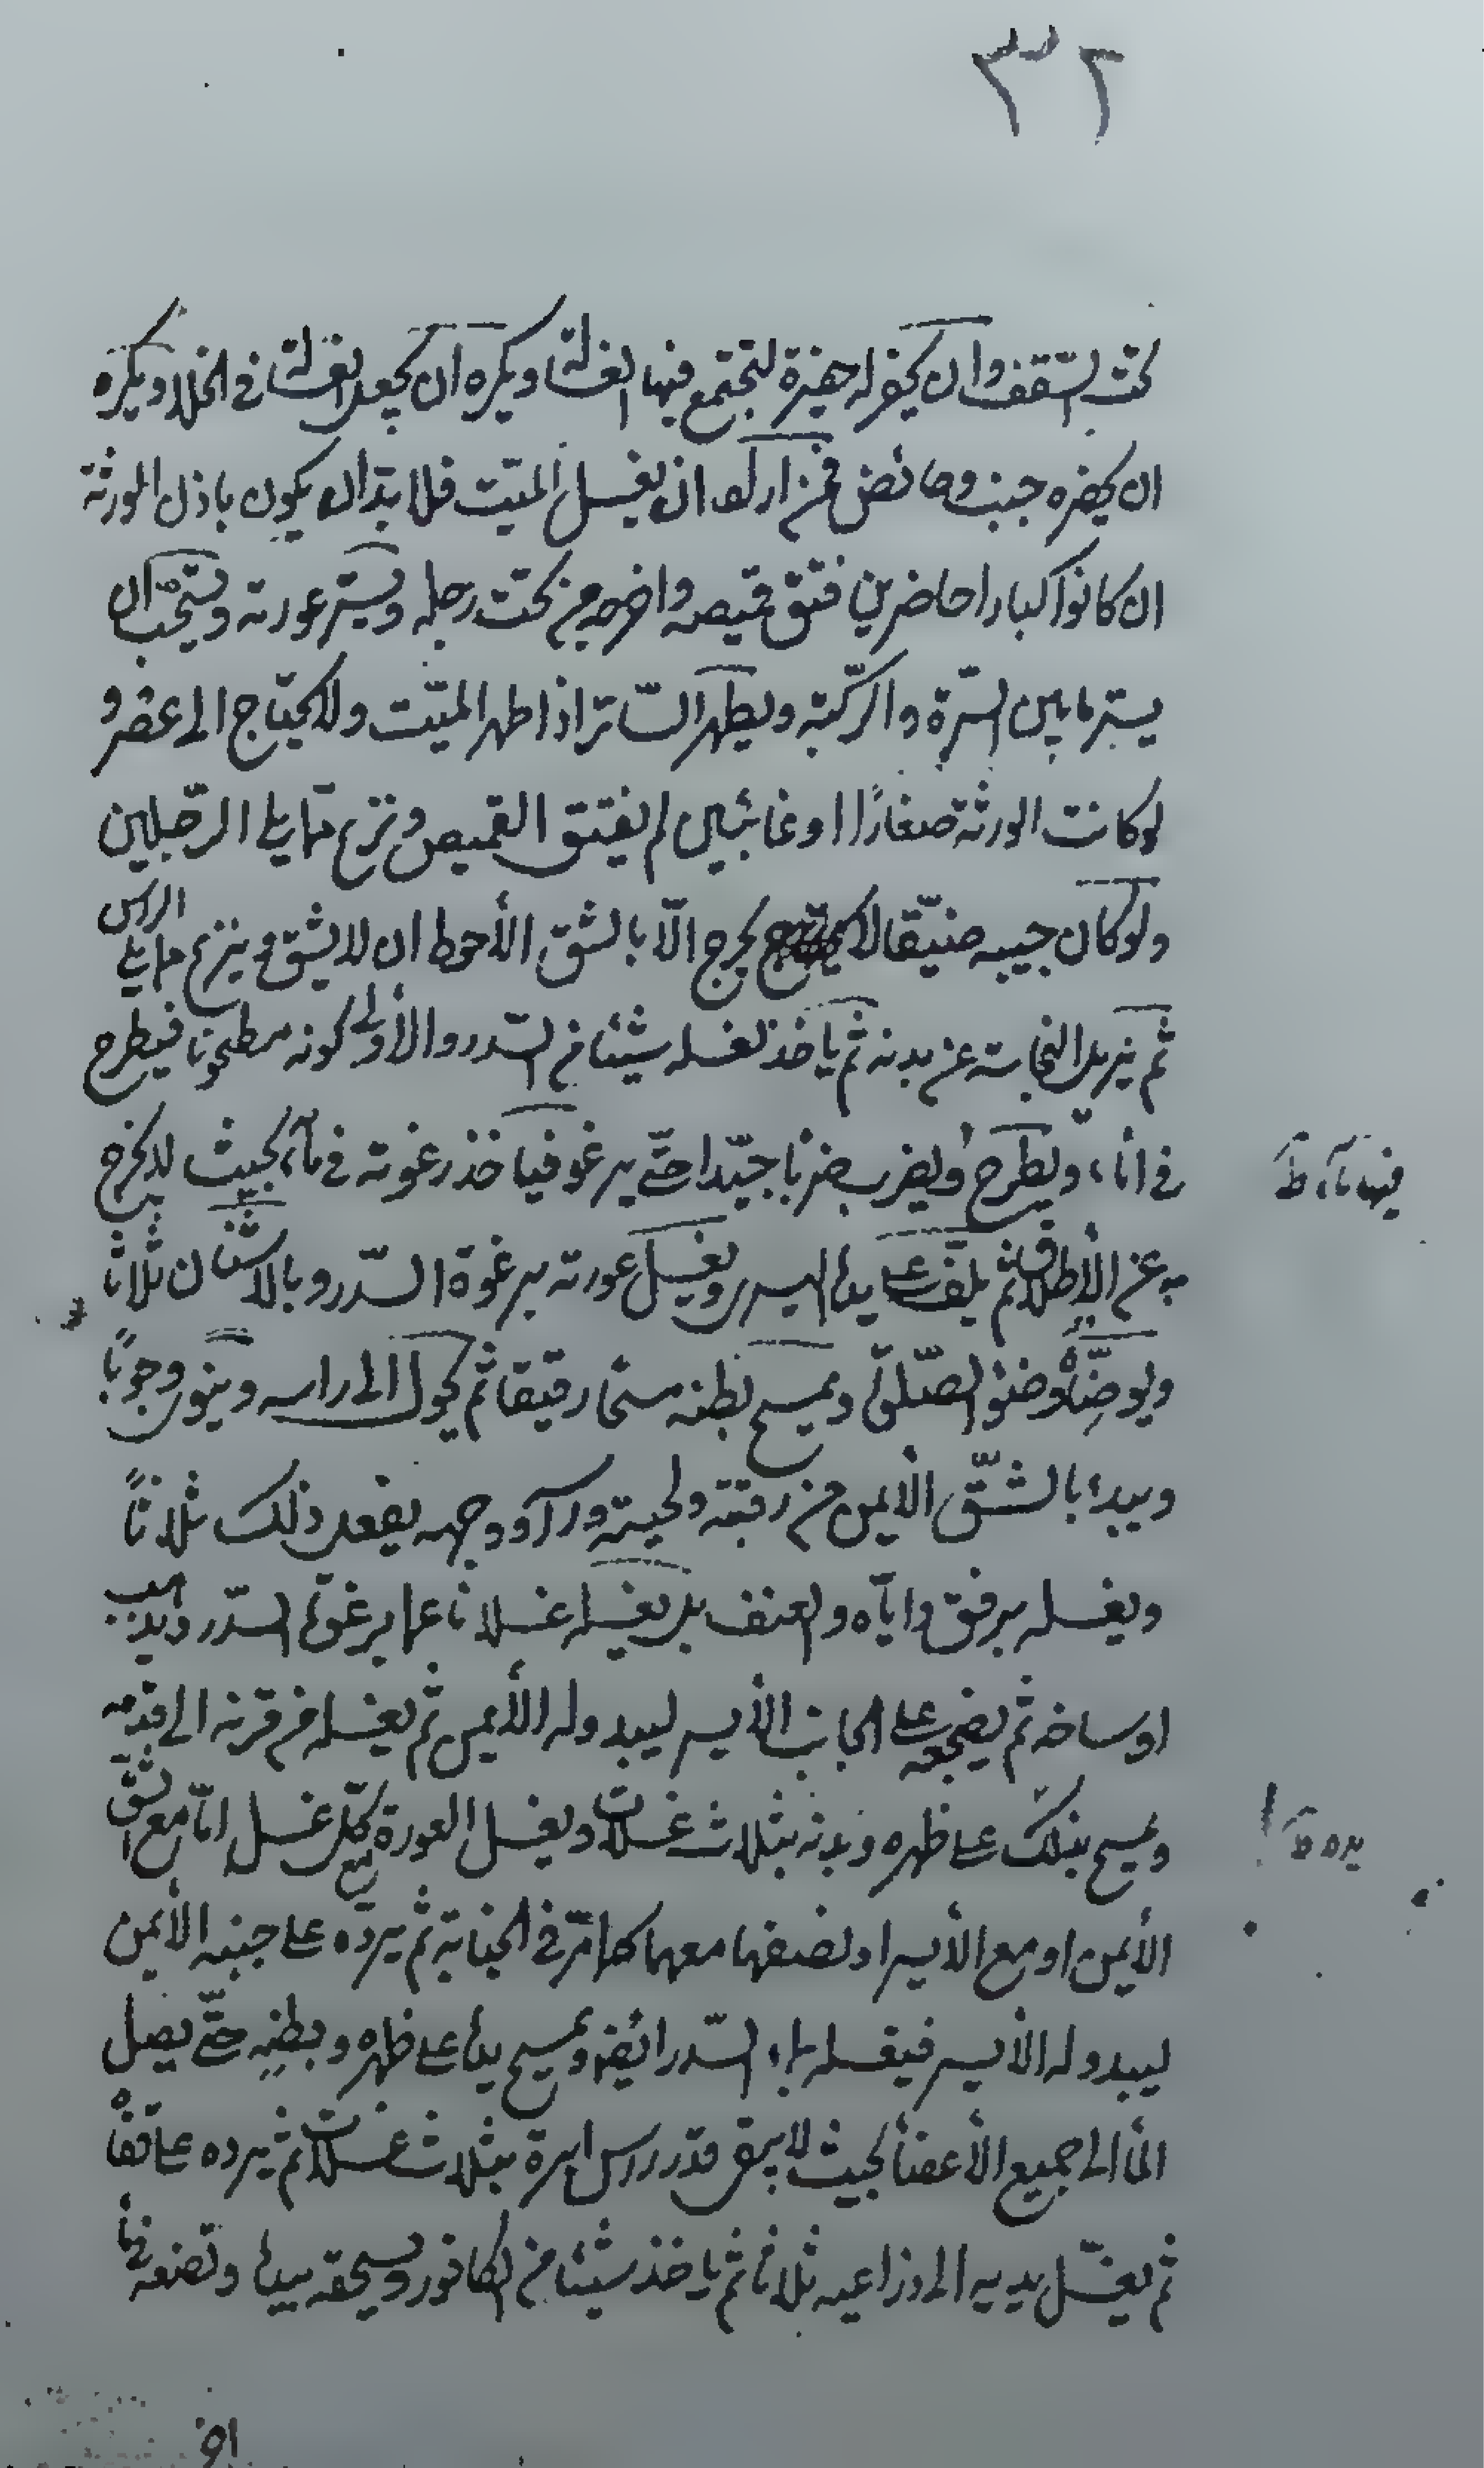 ٣٢
تحت السّقف وان يحفر له حفيرة لتجتمع فيها الغسالة ويكره ان يجعل الغسالة في الخلاء ويكره
ان يحضره جنب وحائض فمن اراد ان يغسل الميّت فلا بدّ ان يكون باذن الورثة
ان كانوا كبارا حاضرين فتق قميصه واخرجه من تحت رجله ويستر عورته ويستحبّ ان
يستر ما بين السّرة والرّكبة ويطهر السّاتر اذا طهر الميّت ولا يحتاج الى عصر و
لو كانت الورثة صغارًا او غائبين لم يفتق القميص ونزع ممّا يلي الرّجلين
ولو كان جيبه ضيّقا لا يخرج الّا بالشق الأحوط ان لا يشق وينزع ممايلي الراس
ثم يزيل النجاسة عن بدنه ثم ياخذ لغسله شيئا من السّدر والأولى كونه مطحونا فيطرح
في اناء ويطرح ويضرب ضربا جيّدا حتّى يرغو فياخذ رغوته في ماء بحيث لا يخرج
فيها ماء ظ
به عن الأطلاق ثم يلفّ على يده اليسرى ويغسل عورته برغوة السّدر وبالاشنان ثلاثا
ويوضّأ وضوء الصّلوة ويمسح بطنه مسحا رقيقا ثم يحول الى راسه وينوي وجوبًا
ويبدء بالشّقّ الأيمن من رقبته ولحيته وراسه ووجهه يفعل ذلك ثلاثًا
ويغسله برفق وايّاه والعنف بل يغسله غسلا ناعما برغوة السّدر ويذهب
اوساخه ثم يضجعه على الجانب الأيسر ليبدو له الأيمن ثم يغسله من قرنه الى قدمه
ويمسح بذلك على ظهره وبدنه بثلاث غسلات ويغسل العورة مع كلّ غسل امّا مع الشّقّ
يده ظ
الأيمن او مع الأيسر او نصفها معهما كما مرّ في الجنابة ثم يردّه على جنبه الأيمن
ليبدو له الأيسر فيغسله بماء السّدر ايضا ويمسح يده على ظهره وبطنه حتّى يصل
الماء الى جميع الأعضاء بحيث لا يبقى قدر راس ابرة بثلاث غسلات ثم يرده على قفاه
ثم يغسّل يديه الى ذراعيه ثلاثا ثم ياخذ شيئا من الكافور ويسحقه بيده وتضعه في ماء